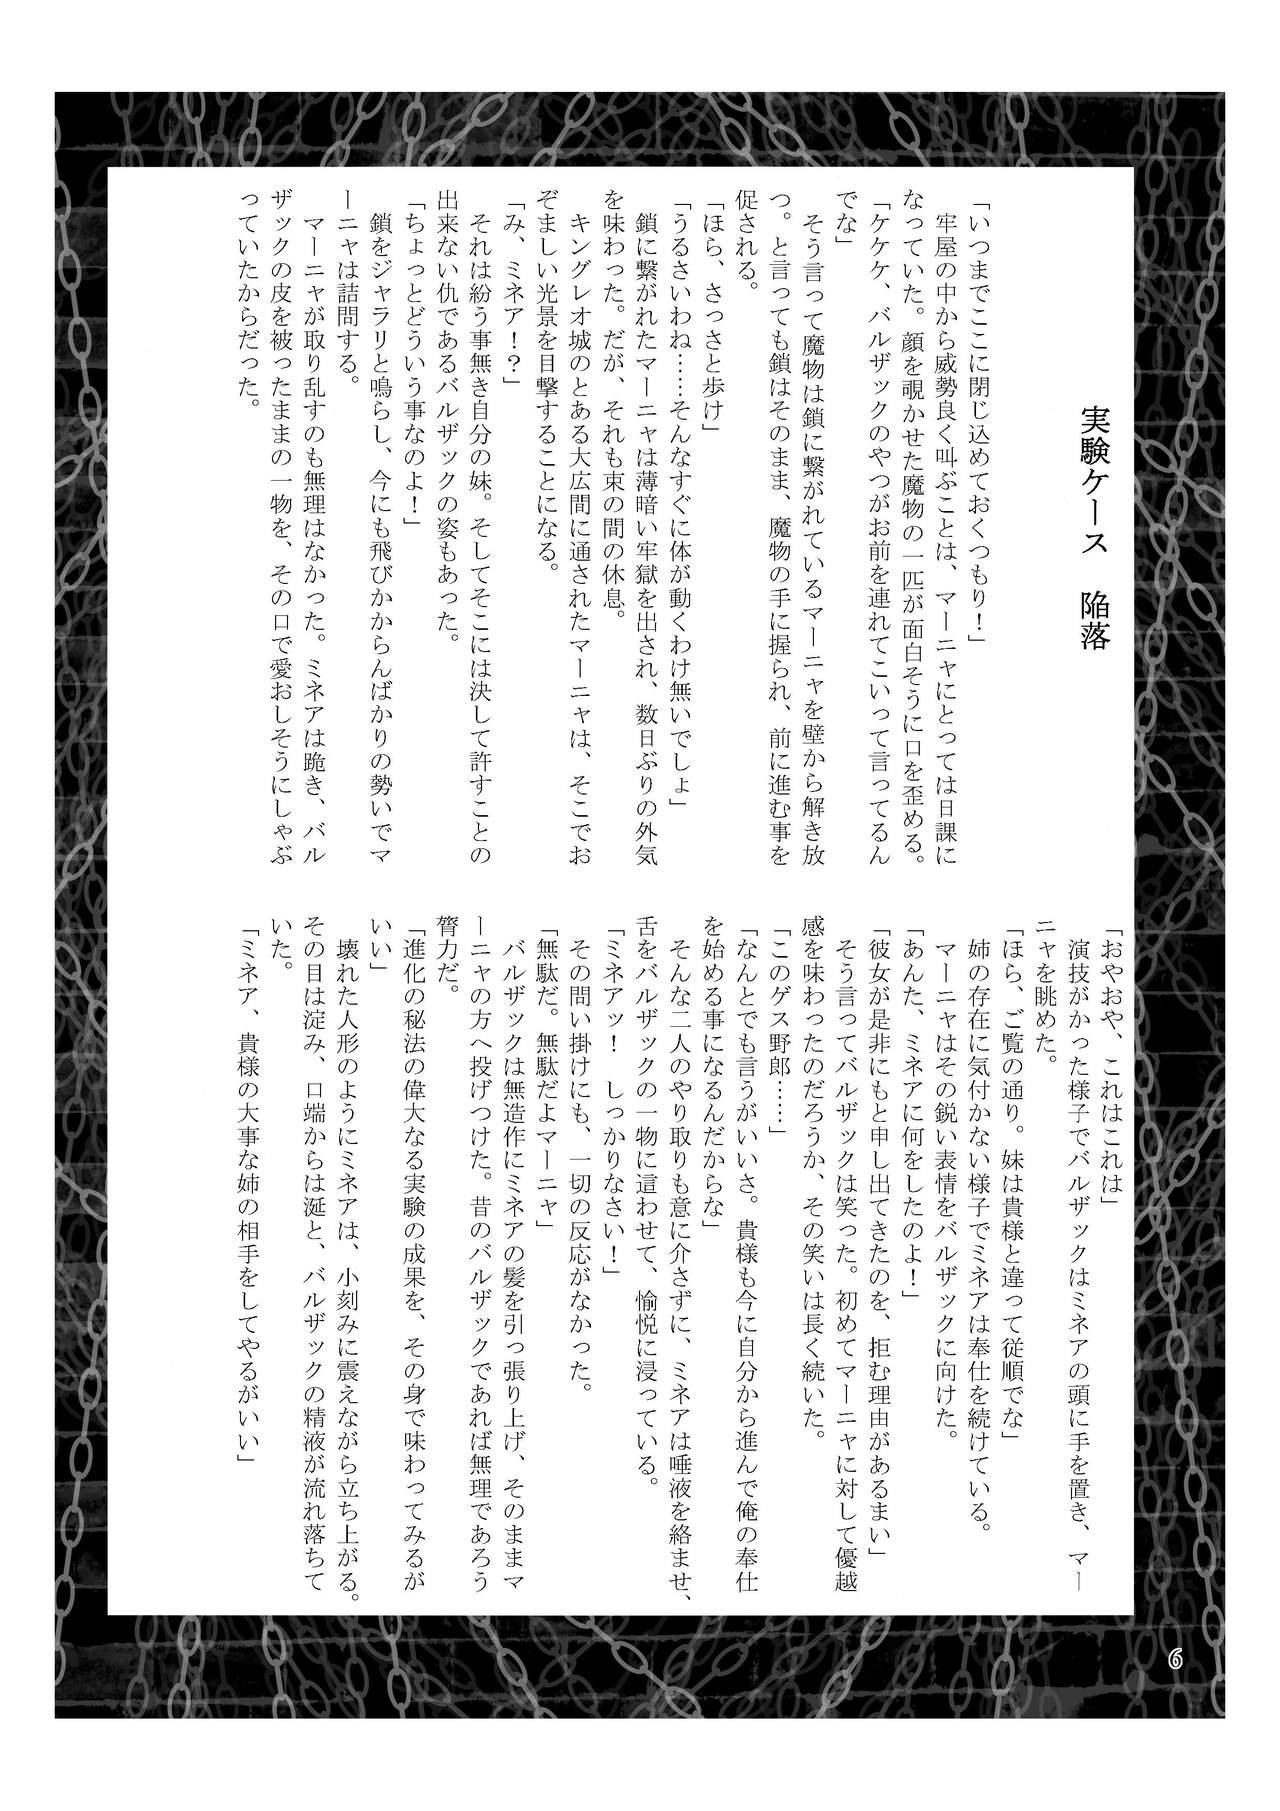 実験ケース　陥落
「いつまでここに閉じ込めておくつもり！」
　牢屋の中から威勢良く叫ぶことは、マーニャにとっては日課に
なっていた。顔を覗かせた魔物の一匹が面白そうに口を歪める。
「ケケケ、バルザックのやつがお前を連れてこいって言ってるん
でな」
　そう言って魔物は鎖に繋がれているマーニャを壁から解き放
つ。と言っても鎖はそのまま、魔物の手に握られ、前に進む事を
促される。
「ほら、さっさと歩け」
「うるさいわね……そんなすぐに体が動くわけ無いでしょ」
　鎖に繋がれたマーニャは薄暗い牢獄を出され、数日ぶりの外気
を味わった。だが、それも束の間の休息。
　キングレオ城のとある大広間に通されたマーニャは、そこでお
ぞましい光景を目撃することになる。
「み、ミネア！？」
　それは紛う事無き自分の妹。そしてそこには決して許すことの
出来ない仇であるバルザックの姿もあった。
「ちょっとどういう事なのよ！」
　鎖をジャラリと鳴らし、今にも飛びかからんばかりの勢いでマ
ーニャは詰問する。
　マーニャが取り乱すのも無理はなかった。ミネアは跪き、バル
ザックの皮を被ったままの一物を、その口で愛おしそうにしゃぶ
っていたからだった。
「おやおや、これはこれは」
　演技がかった様子でバルザックはミネアの頭に手を置き、マー
ニャを眺めた。
「ほら、ご覧の通り。妹は貴様と違って従順でな」
　姉の存在に気付かない様子でミネアは奉仕を続けている。
　マーニャはその鋭い表情をバルザックに向けた。
「あんた、ミネアに何をしたのよ！」
「彼女が是非にもと申し出てきたのを、拒む理由があるまい」
　そう言ってバルザックは笑った。初めてマーニャに対して優越
感を味わったのだろうか、その笑いは長く続いた。
「このゲス野郎……」
「なんとでも言うがいいさ。貴様も今に自分から進んで俺の奉仕
を始める事になるんだからな」
　そんな二人のやり取りも意に介さずに、ミネアは唾液を絡ませ、
舌をバルザックの一物に這わせて、愉悦に浸っている。
「ミネアッ！　しっかりなさい！」
　その問い掛けにも、一切の反応がなかった。
「無駄だ。無駄だよマーニャ」
　バルザックは無造作にミネアの髪を引っ張り上げ、そのままマ
ーニャの方へ投げつけた。昔のバルザックであれば無理であろう
膂力だ。
「進化の秘法の偉大なる実験の成果を、その身で味わってみるが
いい」
　壊れた人形のようにミネアは、小刻みに震えながら立ち上がる。
その目は淀み、口端からは涎と、バルザックの精液が流れ落ちて
いた。
「ミネア、貴様の大事な姉の相手をしてやるがいい」
6